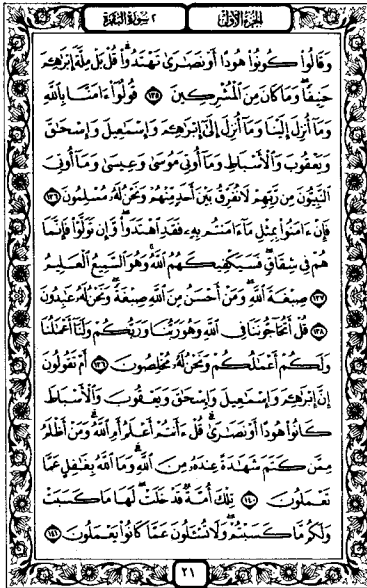 الجزء الأول ٢ سورة البقرة
وَقَالُوا۟ كُونُوا۟ هُودًا أَوْ نَصَٰرَىٰ تَهْتَدُوا۟ ۗ قُلْ بَلْ مِلَّةَ إِبْرَٰهِـۧمَ
حَنِيفًا ۖ وَمَا كَانَ مِنَ ٱلْمُشْرِكِينَ ١٣٥ قُولُوٓا۟ ءَامَنَّا بِٱللَّهِ
وَمَآ أُنزِلَ إِلَيْنَا وَمَآ أُنزِلَ إِلَىٰٓ إِبْرَٰهِـۧمَ وَإِسْمَٰعِيلَ وَإِسْحَٰقَ
وَيَعْقُوبَ وَٱلْأَسْبَاطِ وَمَآ أُوتِىَ مُوسَىٰ وَعِيسَىٰ وَمَآ أُوتِىَ
ٱلنَّبِيُّونَ مِن رَّبِّهِمْ لَا نُفَرِّقُ بَيْنَ أَحَدٍ مِّنْهُمْ وَنَحْنُ لَهُۥ مُسْلِمُونَ ١٣٦
فَإِنْ ءَامَنُوا۟ بِمِثْلِ مَآ ءَامَنتُم بِهِۦ فَقَدِ ٱهْتَدَوا۟ ۖ وَّإِن تَوَلَّوْا۟ فَإِنَّمَا
هُمْ فِى شِقَاقٍ ۖ فَسَيَكْفِيكَهُمُ ٱللَّهُ ۚ وَهُوَ ٱلسَّمِيعُ ٱلْعَلِيمُ
١٣٧ صِبْغَةَ ٱللَّهِ ۖ وَمَنْ أَحْسَنُ مِنَ ٱللَّهِ صِبْغَةً ۖ وَنَحْنُ لَهُۥ عَٰبِدُونَ
١٣٨ قُلْ أَتُحَآجُّونَنَا فِى ٱللَّهِ وَهُوَ رَبُّنَا وَرَبُّكُمْ وَلَنَآ أَعْمَٰلُنَا
وَلَكُمْ أَعْمَٰلُكُمْ وَنَحْنُ لَهُۥ مُخْلِصُونَ ١٣٩ أَمْ تَقُولُونَ
إِنَّ إِبْرَٰهِـۧمَ وَإِسْمَٰعِيلَ وَإِسْحَٰقَ وَيَعْقُوبَ وَٱلْأَسْبَاطَ
كَانُوا۟ هُودًا أَوْ نَصَٰرَىٰ ۗ قُلْ ءَأَنتُمْ أَعْلَمُ أَمِ ٱللَّهُ ۗ وَمَنْ أَظْلَمُ
مِمَّن كَتَمَ شَهَٰدَةً عِندَهُۥ مِنَ ٱللَّهِ ۗ وَمَا ٱللَّهُ بِغَٰفِلٍ عَمَّا
تَعْمَلُونَ ١٤٠ تِلْكَ أُمَّةٌ قَدْ خَلَتْ ۖ لَهَا مَا كَسَبَتْ
وَلَكُم مَّا كَسَبْتُمْ ۖ وَلَا تُسْـَٔلُونَ عَمَّا كَانُوا۟ يَعْمَلُونَ ١٤١
٢١